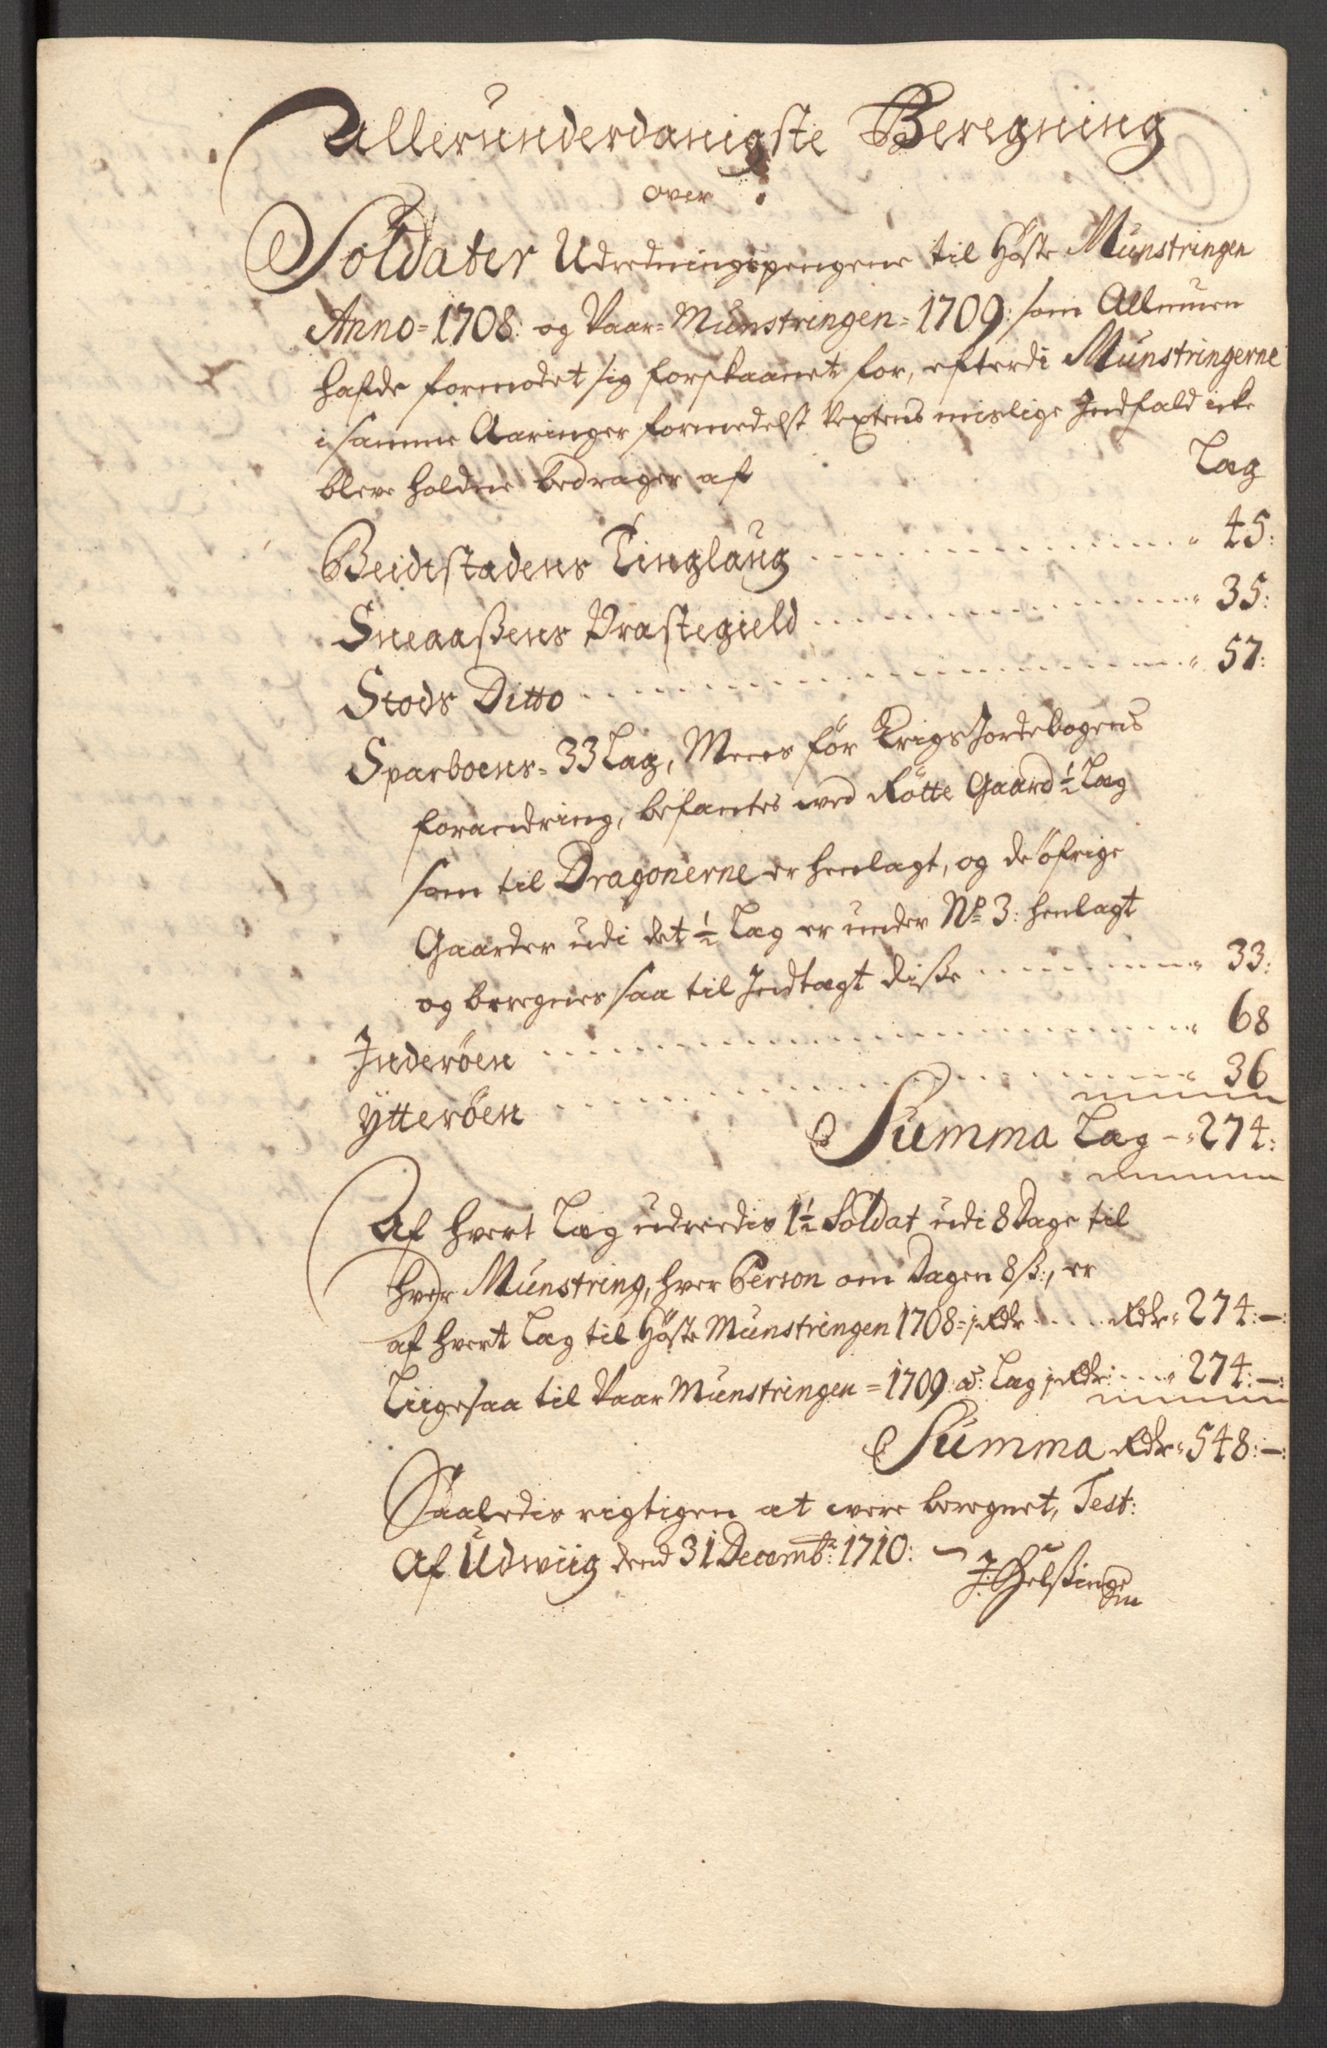 Allerunderdanigste Beregning
over
Soldater Udredningspengene til Høste Munstringen
Anno = 1708: og Vaar = Munstringen = 1709: som Allmuen
hafde formodet sig forskaanet for, efterdi Munstringerne
i samme Aaringer formedelst Vextens mislige Indfald icke
bleve holdne bedrager af Læg
Beidestadens Tinglaug 45:
Sneaaßens Præstegield 35:
Stods Ditto 57:
Sparboens = 33 Læg, Meere før Krigs Jordebogens
forandring, befantes wed Røtte Gaard ½ Læg
som til Dragonerne er henlagt, og de øfrige
Gaarder udi det ½ Læg er under No 3: henlagt
og beregnes saa til Indtægt diße 33:
Inderøen 68
Ytterøen 36
Summa Læg - 274:
Af hvert Læg udreedis 1½ Soldat udi 8 Dage til
hver Munstring, hver Person om Dagen 8 ß:, er
af hvert Læg til Høste Munstringen 1708 = 1 Rdr Rdr 274: -:
Liigesaa til Vaar Munstringen = 1709: a: Læg 1 Rdr: 274: -:
Summa Rdr 548: -:
Saaledis rigtigen at were beregnet, Test:
Af Udwiig dend 31 Decembr: 1710:
J: Helßing